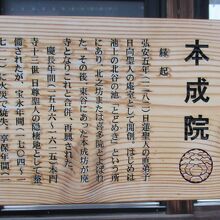 本成院
縁起
弘安五年(一二八二)日蓮聖人の直弟子
日向聖人の庵室として開創。はじめは
池上の北谷の地「とどめき」という所
にあり、北之坊または喜多院とよばれ
た。その後、東谷にあった本成坊が廃
寺となり、これと合併、再興された。
慶長年間(一五九六〜一六一五)本門
寺十三世日尊聖人の隠棲地として
備されたが、宝永年間(一七〇四〜
七一一)に火災で焼失、享保年間